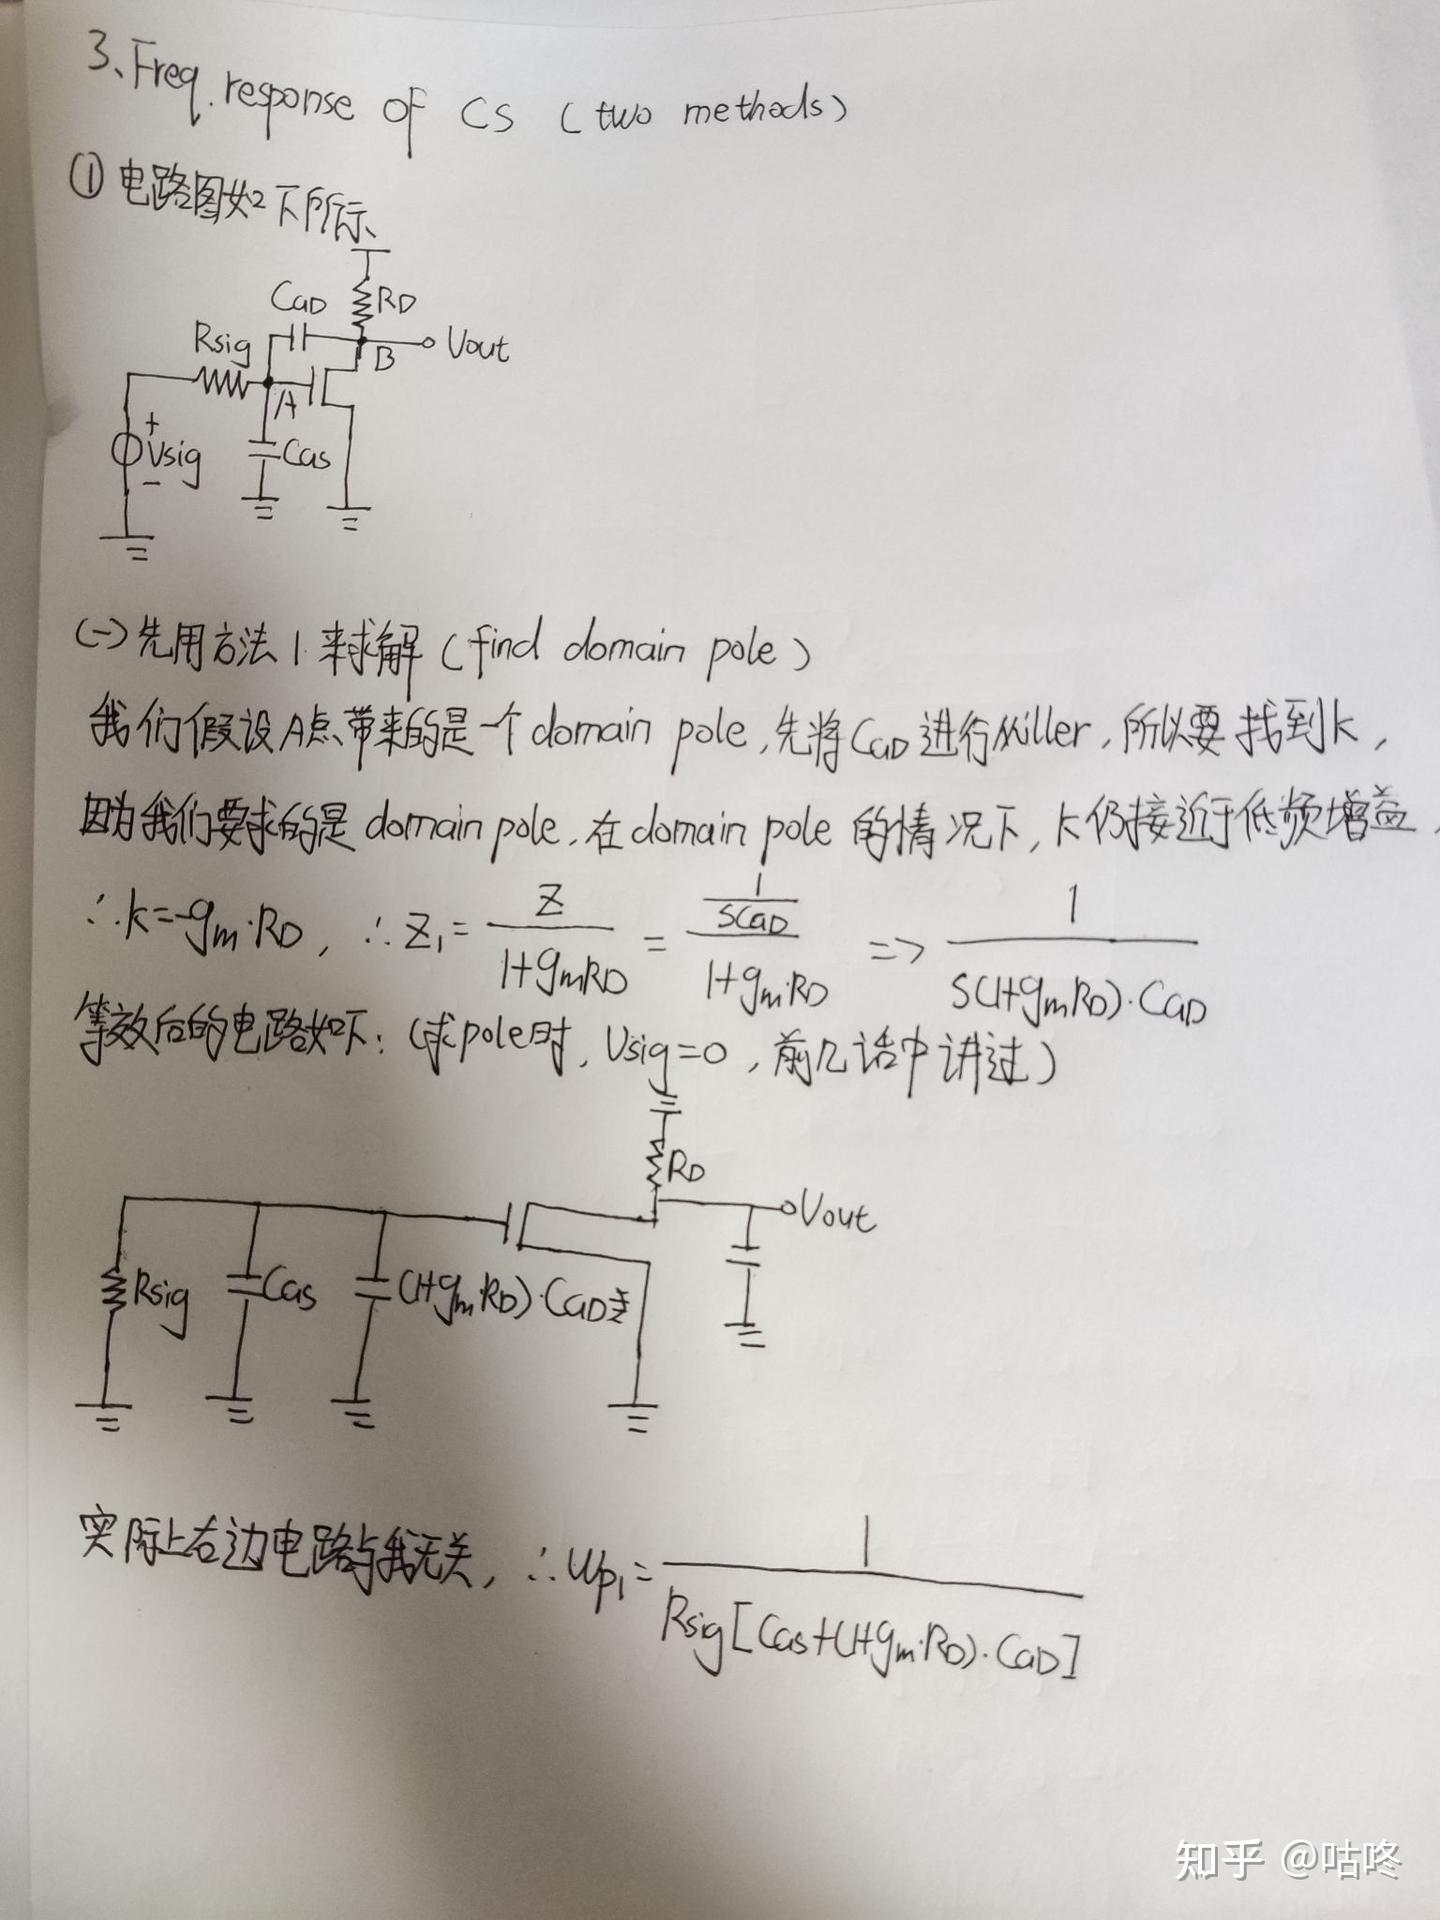 3、Freq. response of CS (two methods)
① 电路图如下所示
CGD
RD
Rsig
B
Vout
A
+
Vsig
-
CGS
(一) 先用方法1来求解 (find domain pole)
我们假设A点带来的是一个domain pole,先将CGD进行Miller,所以要找到k,
因为我们要求的是domain pole,在domain pole的情况下,k仍接近于低频增益,
∴k=-gm·RD, ∴Z1= Z/(1+gmRD) = (1/SCGD)/(1+gm·RD) => 1/(S(1+gmRD)·CGD)
等效后的电路如下: (求pole时, Vsig=0, 前几话中讲过)
RD
Vout
Rsig
CGS
(1+gm·RD)·CGD
实际上右边电路与我无关, ∴ωp1= 1/(Rsig[CGS+(1+gm·RD)·CGD])
知乎 @咕咚